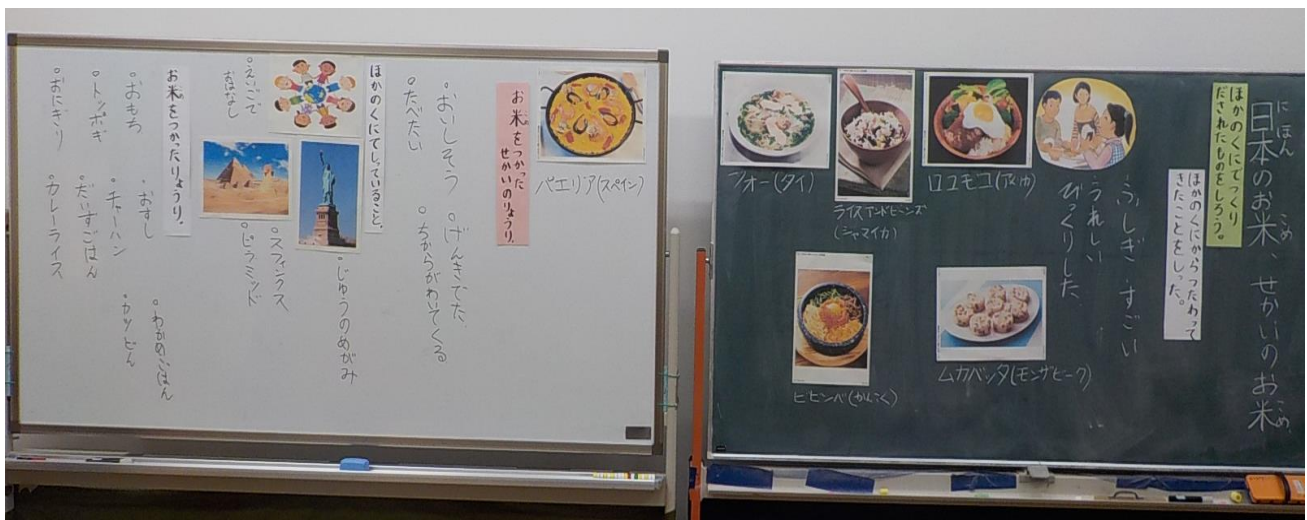 日本のお米、せかいのお米
にほん
こめ
こめ
ほかのくにでつくり
だされたものをしろう。
ほかのくにからつたわって
きたことをしった。
ふしぎ すごい
うれしい
びっくりした
ロコモコ(アメリカ)
ライスアンドビーンズ
(ジャマイカ)
フォー(タイ)
ムカベッタ(モンザビーク)
ビビンベ(かんこく)
パエリア(スペイン)
お米をつかった
せかいのりょうり。
おいしそう
げんきでた
たべたい
ちからがわいてくる
ほかのくにでしっていること。
じゆうのめがみ
スフィンクス
ピラミッド
えいごで
おはなし
お米をつかったりょうり。
おもち
おすし
わかめごはん
トッポギ
チャーハン
カツどん
おにぎり
だいずごはん
カレーライス